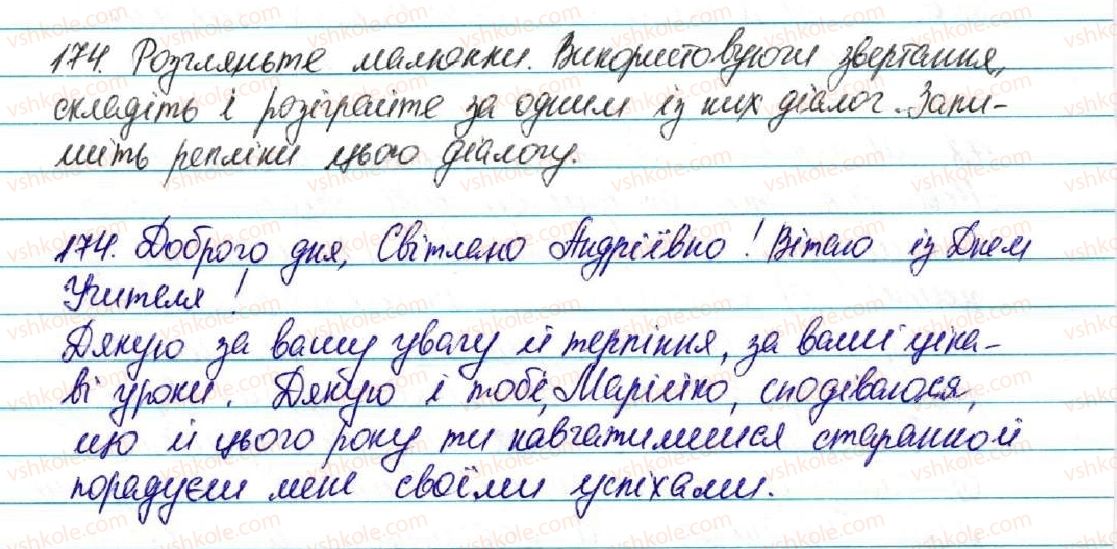 174. Розгляньте малюнки. Використовуючи звертання,
складіть і розіграйте за одним із них діалог. Запи-
шіть репліки цього діалогу.
174. Доброго дня, Світлано Андріївно! Вітаю із Днем
Учителя!
Дякую за вашу увагу й терпіння, за ваші ціка-
ві уроки. Дякую і тобі, Марійко, сподіваюся,
що й цього року ти навчатимешся старанно й
порадуєш мене своїми успіхами.